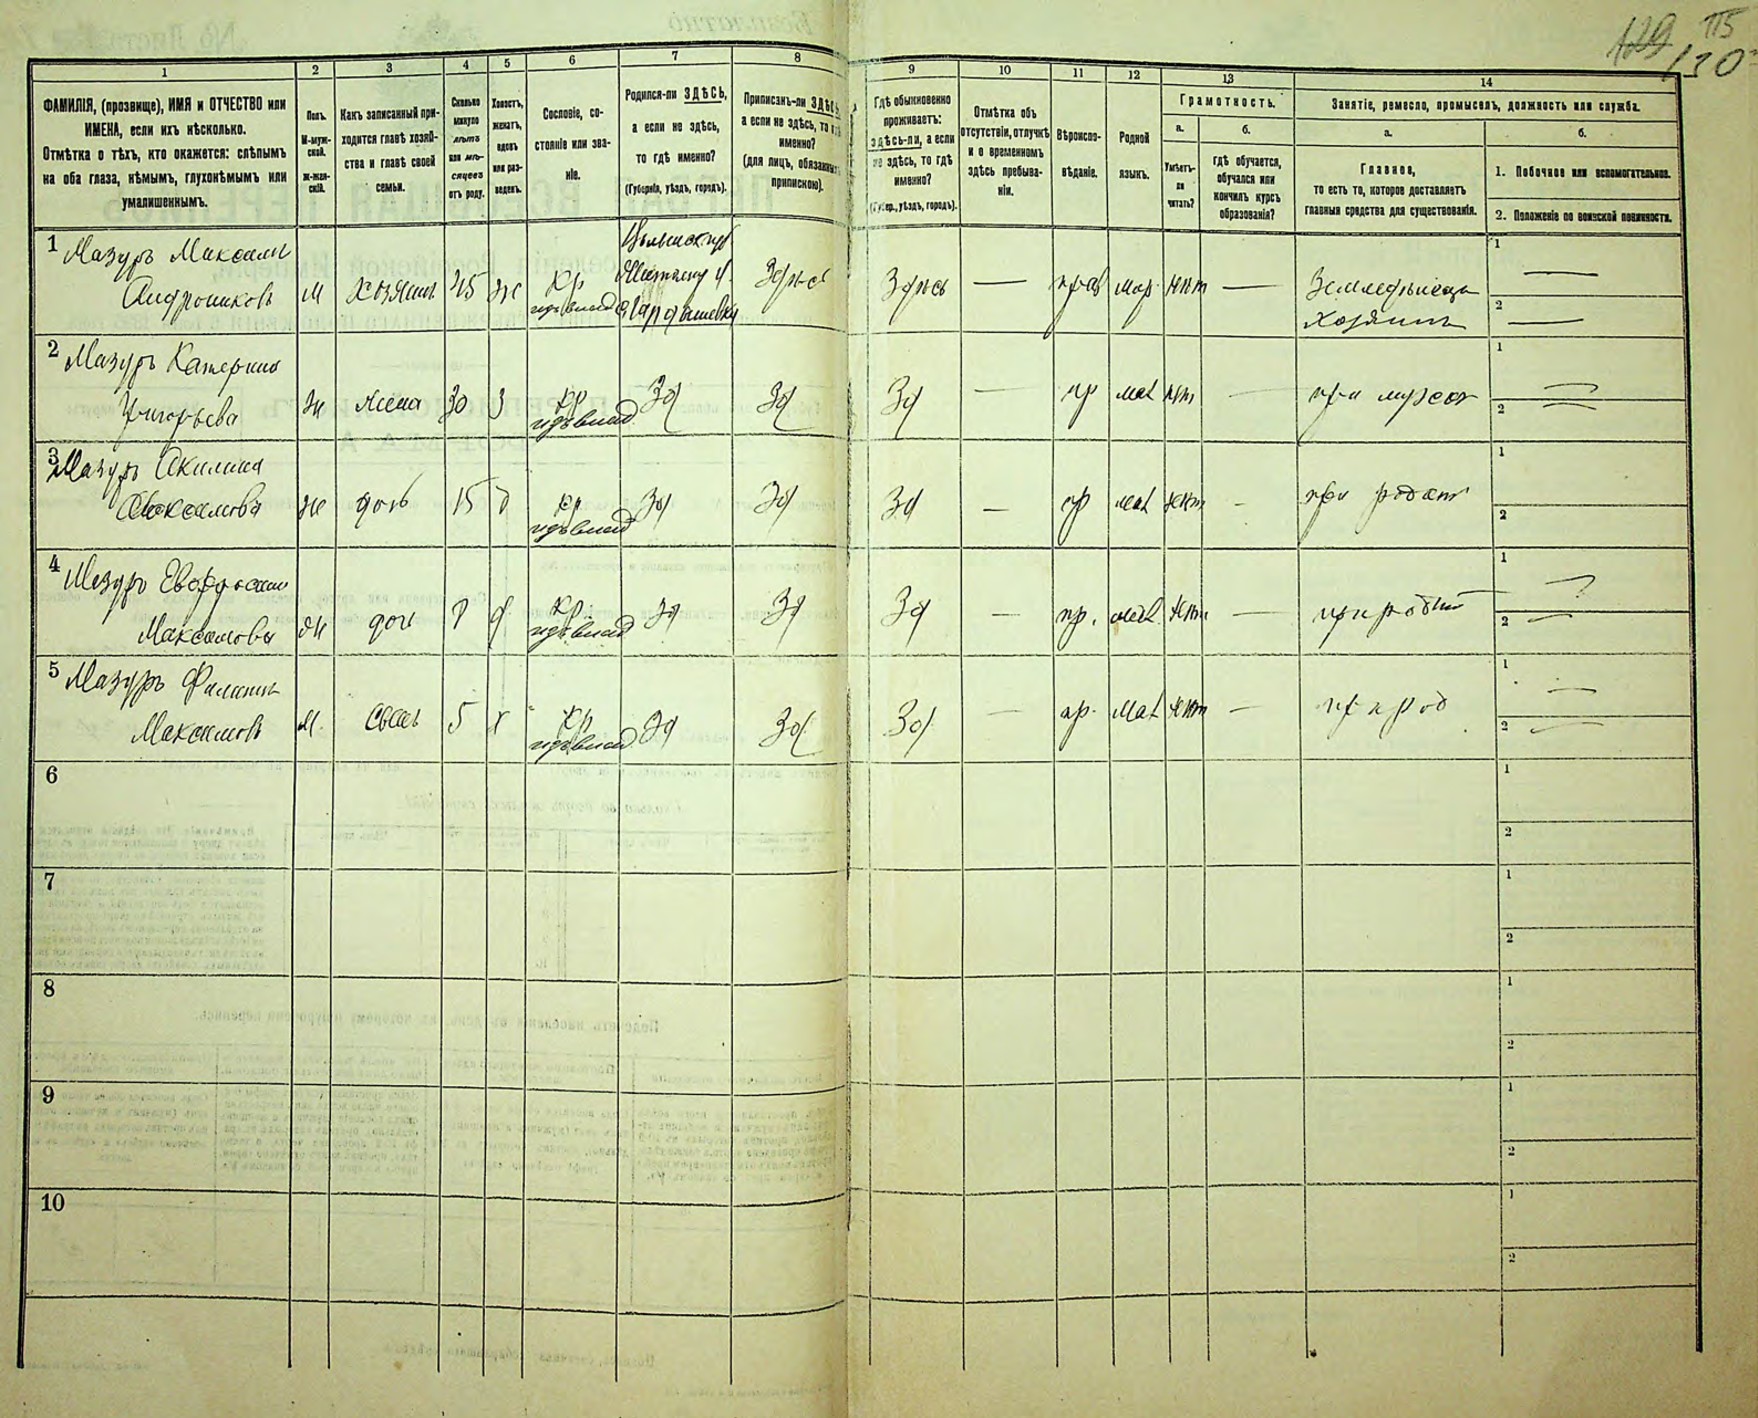 129 115
130
1 2 3 4 5 6 7 8 9 10 11 12 13 14
ФАМИЛІЯ, (прозвище), ИМЯ и ОТЧЕСТВО или
ИМЕНА, если ихъ нѣсколько.
Отмѣтка о тѣхъ, кто окажется: слѣпымъ
на оба глаза, нѣмымъ, глухонѣмымъ или
умалишеннымъ.
Полъ.
М-муж-
ской.
Ж-жен-
скій.
Какъ записанный при-
ходится главѣ хозяй-
ства и главѣ своей
семьи.
Сколько
минуло
лѣтъ
или мѣ-
сяцевъ
отъ роду.
Холостъ,
женатъ,
вдовъ
или раз-
веденъ.
Сословіе, со-
стояніе или зва-
ніе.
Родился-ли ЗДѢСЬ,
а если не здѣсь,
то гдѣ именно?
(Губернія, уѣздъ, городъ).
Приписанъ-ли ЗДѢСЬ,
а если не здѣсь, то
именно?
(для лицъ, обязанныхъ
припискою).
Гдѣ обыкновенно
проживаетъ:
здѣсь-ли, а если
не здѣсь, то гдѣ
именно?
(Губер., уѣздъ, городъ).
Отмѣтка объ
отсутствіи, отлучкѣ
и о временномъ
здѣсь пребыва-
ніи.
Вѣроиспо-
вѣданіе.
Родной
языкъ.
Грамотность.
а.
Умѣетъ-
ли
читать?
б.
гдѣ обучается,
обучался или
кончилъ курсъ
образованія?
Занятіе, ремесло, промыселъ, должность или служба.
а.
Главное,
то есть то, которое доставляетъ
главныя средства для существованія.
б.
1. Побочное или вспомогательное.
2. Положеніе по воинской повинности.
1 Мазуръ Максим
Андрониковъ м хозяинъ 45 ж Кр Здѣсь Здѣсь — прав мал нѣт — Земледѣлецъ
хозяинъ
1 —
2 —
2 Мазуръ Катерина
Григорьева ж жена 30 з Кр Зд Зд Зд — пр мал нѣт — при мужѣ
1 —
2 —
3 Мазуръ Акилина
Максимова ж дочь 15 д Кр Зд Зд Зд — пр мал нѣт — при родит
1
2
4 Мазуръ Евфросин
Максимова ж доч д Кр Зд Зд Зд — пр. мал нѣт — при родит
1 —
2 —
5 Мазуръ Филиппъ
Максимовъ м. сынъ 5 х Кр Зд Зд Зд — пр. мал нѣт — при род
1 —
2 —
6 1
2
7 1
2
8 1
2
9 1
2
10 1
2